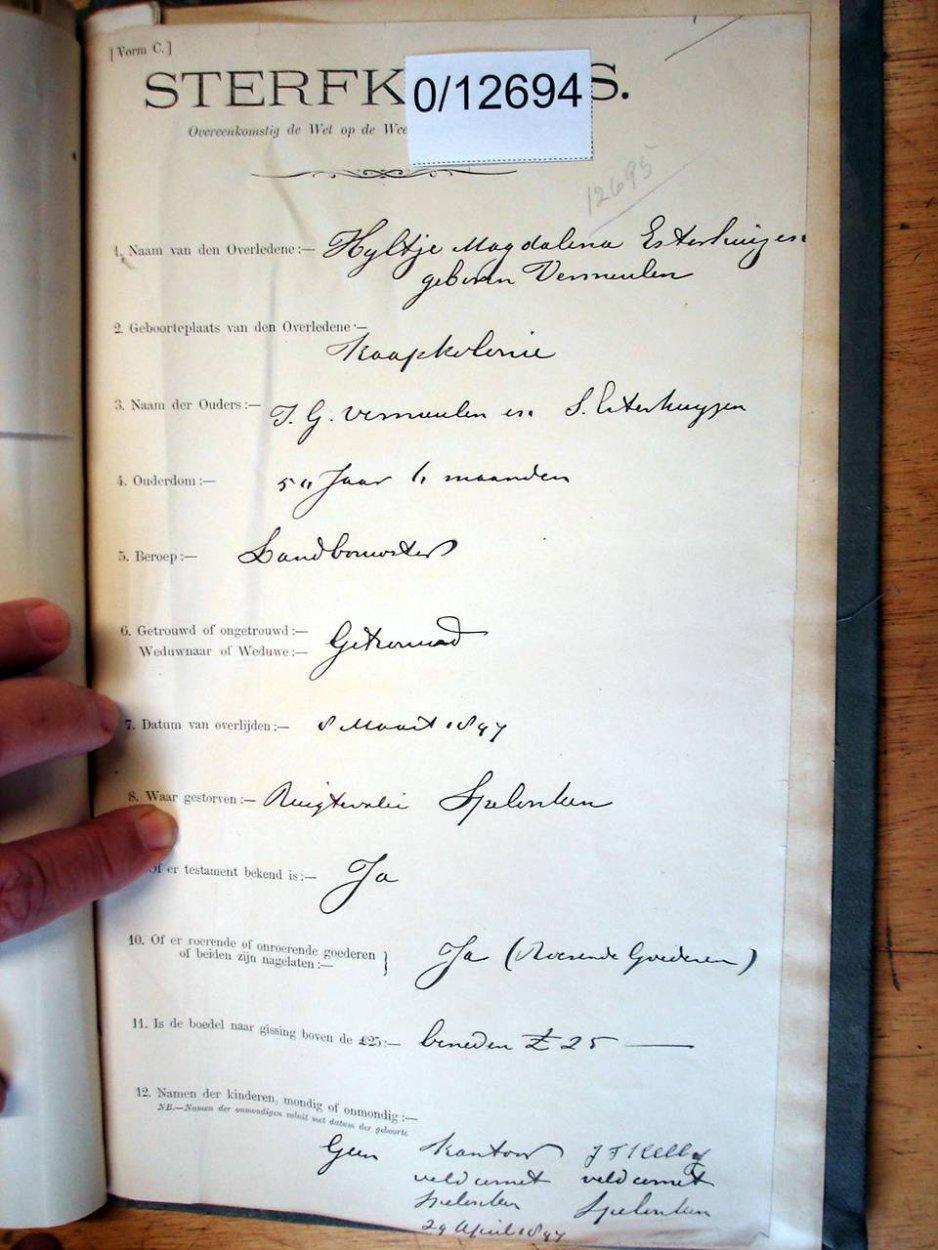 [Vorm C.]
STERFK
0/12694
S.
Overeenkomstig de Wet op de Wee
12695
1. Naam van den Overledene:— Hyltje Magdalena Esterhuizen
geboren Vermeulen
2. Geboorteplaats van den Overledene:—
Kaapkolonie
3. Naam der Ouders:— J. G. Vermeulen en S. Esterhuyzen
4. Ouderdom:— Jaar maanden
5. Beroep:— Landbouwster
6. Getrouwd of ongetrouwd:— Getrouwd
Weduwnaar of Weduwe:—
7. Datum van overlijden:— 8 Maart 1897
8. Waar gestorven:— Ruigtevalei Spelonken
Of er testament bekend is:— Ja
10. Of er roerende of onroerende goederen
of beiden zijn nagelaten:— } Ja (Roerende Goederen)
11. Is de boedel naar gissing boven de £25:— beneden £25 —
12. Namen der kinderen, mondig of onmondig:—
NB.—Namen der onmondigen voluit met datum der geboorte
Geen Kantoor J F Kelly
veldcornet veldcornet
Spelonken Spelonken
29 April 1897